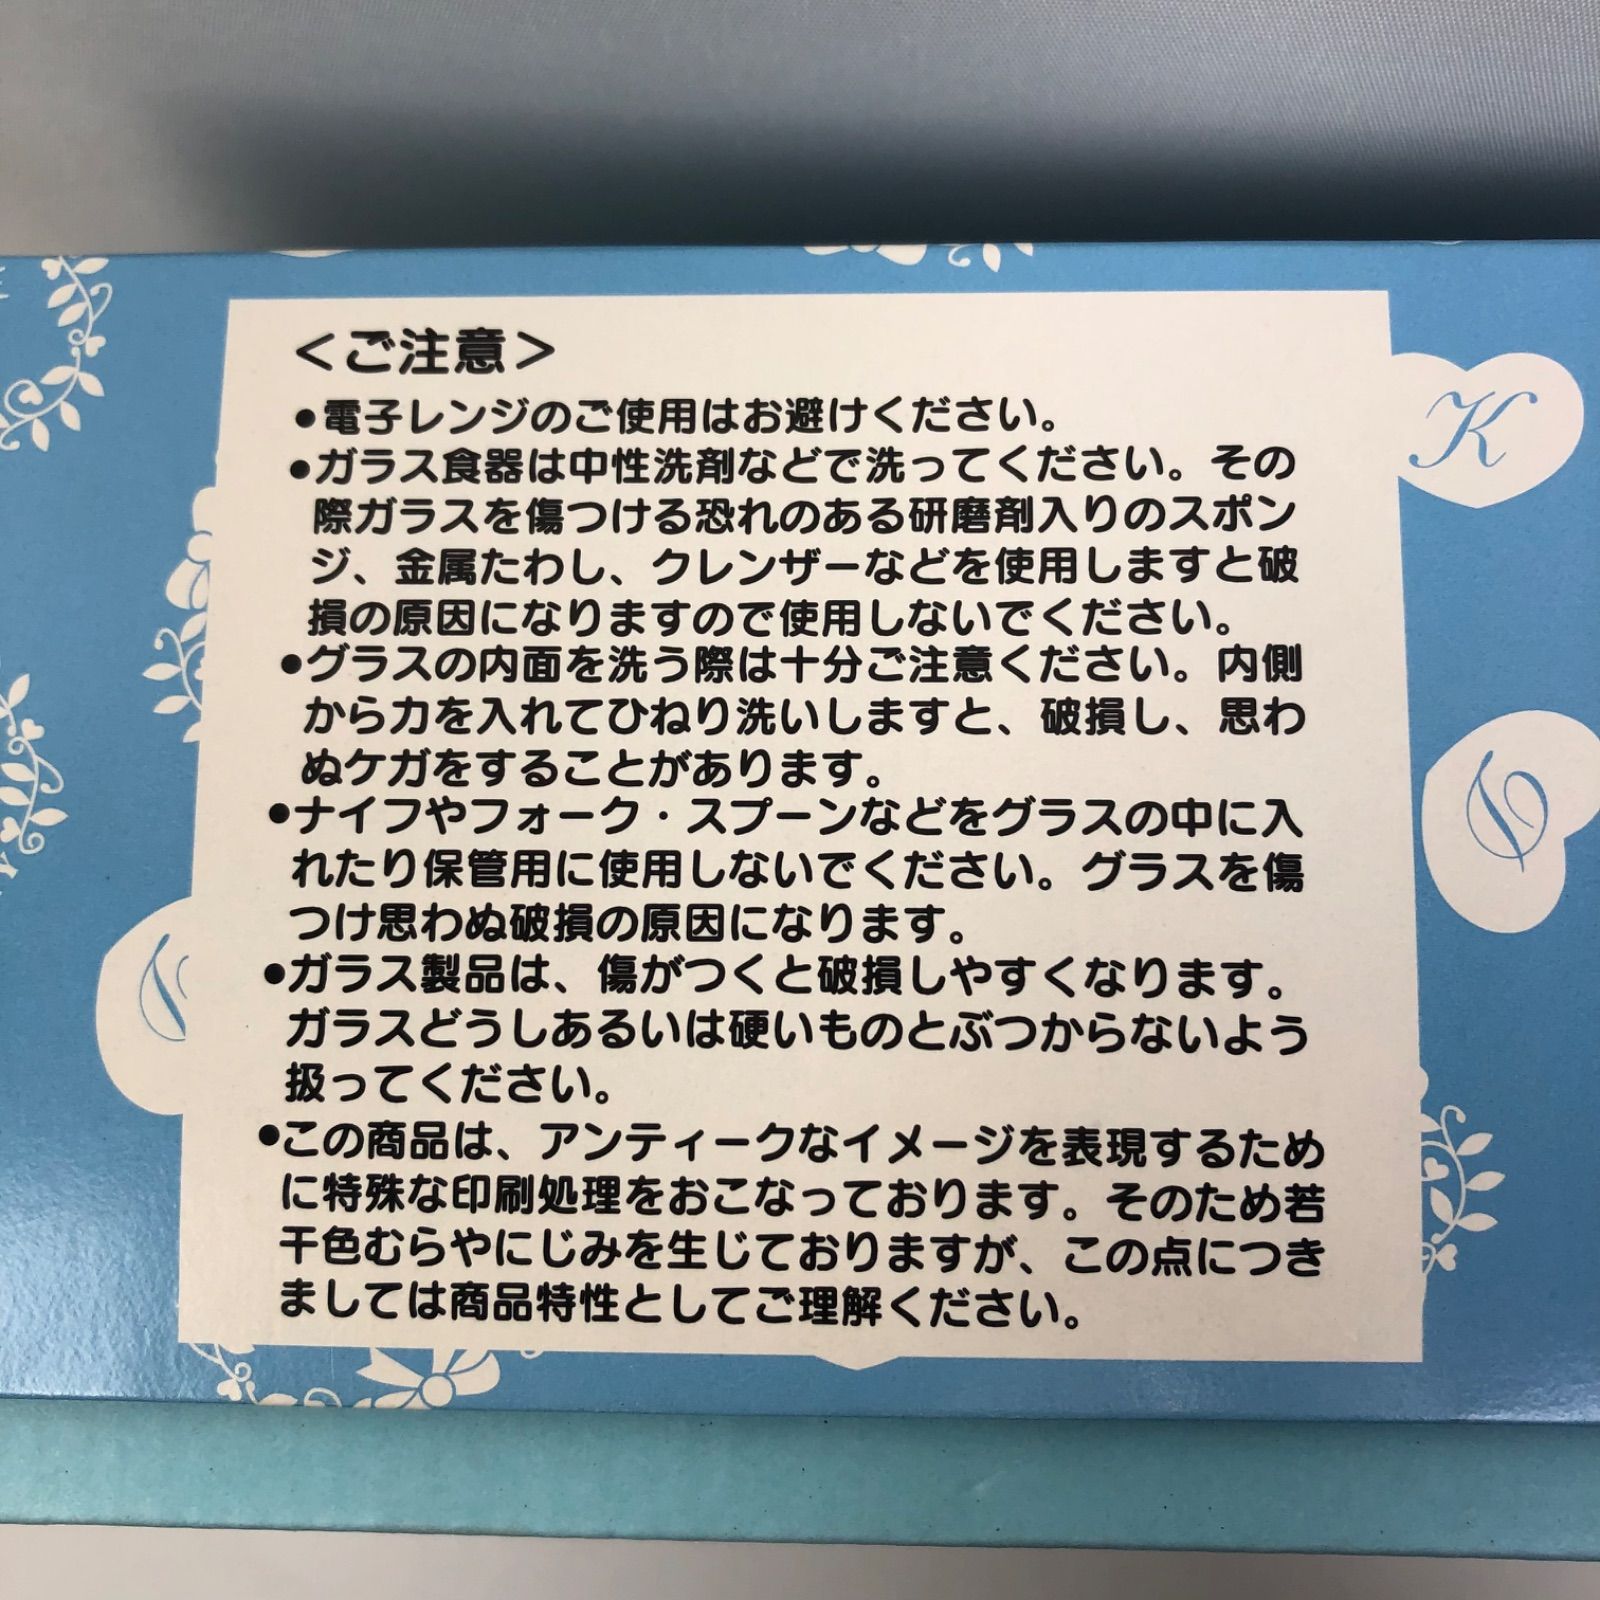 ＜ご注意＞
●電子レンジのご使用はお避けください。
●ガラス食器は中性洗剤などで洗ってください。その
際ガラスを傷つける恐れのある研磨剤入りのスポン
ジ、金属たわし、クレンザーなどを使用しますと破
損の原因になりますので使用しないでください。
●グラスの内面を洗う際は十分ご注意ください。内側
から力を入れてひねり洗いしますと、破損し、思わ
ぬケガをすることがあります。
●ナイフやフォーク・スプーンなどをグラスの中に入
れたり保管用に使用しないでください。グラスを傷
つけ思わぬ破損の原因になります。
●ガラス製品は、傷がつくと破損しやすくなります。
ガラスどうしあるいは硬いものとぶつからないよう
扱ってください。
●この商品は、アンティークなイメージを表現するため
に特殊な印刷処理をおこなっております。そのため若
干色むらやにじみを生じておりますが、この点につき
ましては商品特性としてご理解ください。
K